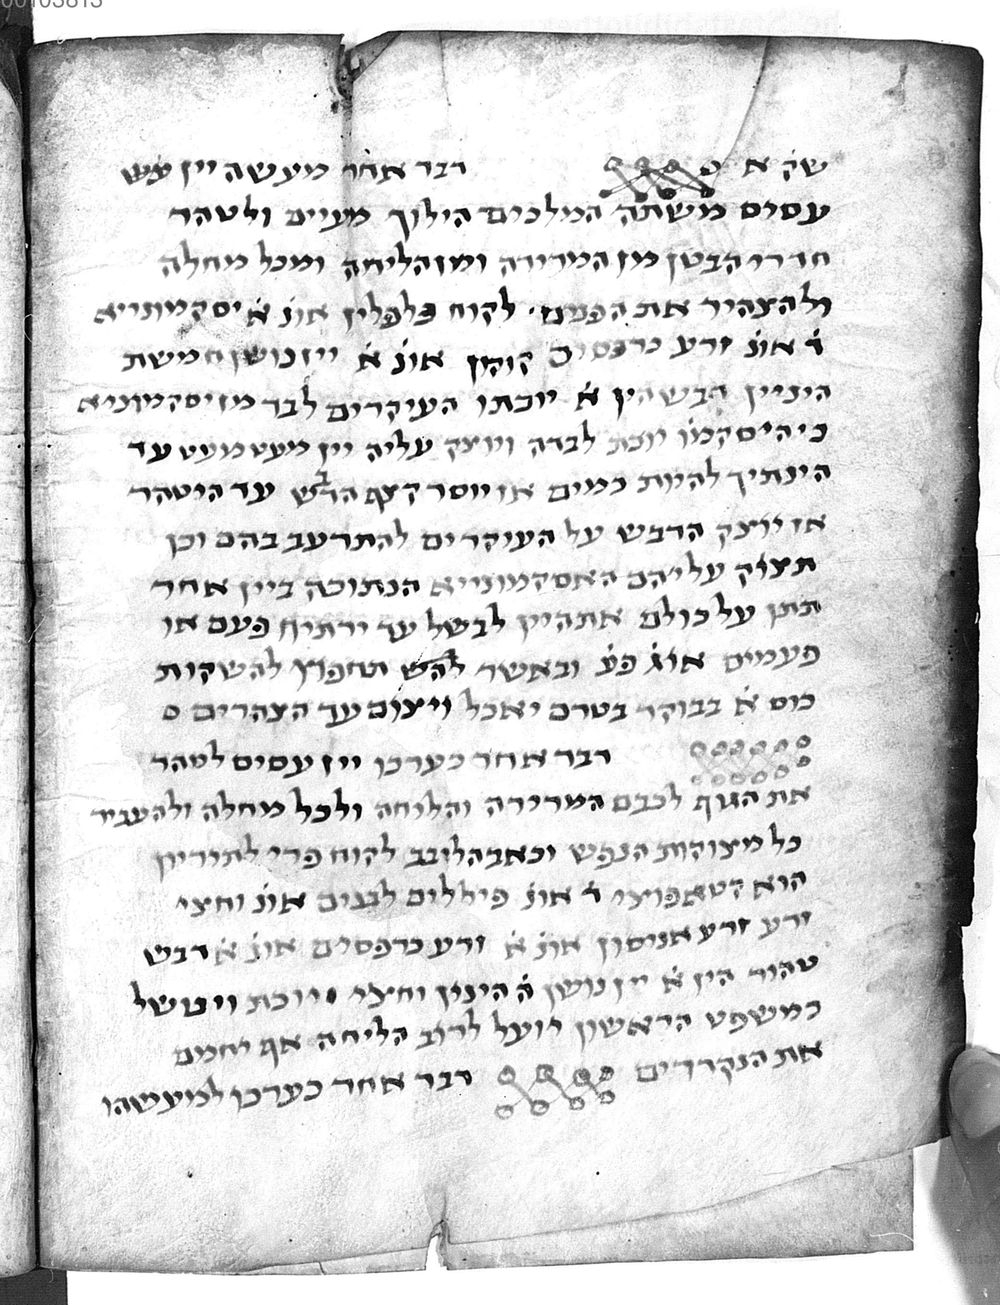 00103813
שק א דבר אחר מעשה יין עש
עסיס משתה המלכים הילוך מעיים ולטהר
חדרי הבטן מן המרירה ומן הליחה ומכל מחלה
ולהצהיר את הפנים לקוח פלפלין אונ א יסקמונייא
ד אונ זרע כרפסים קוהן אונ א יין נושן חמשת
הינניין דבש הין א יוכתו העיקרים לבד מן יסקמונייא
כי היסקמו יוכת לבדה ויוצק עליה יין מעט מעט עד
הינתיך להיות כמים אז יוסר קצף הדבש עד היטהר
אז יוצק הדבש על העיקרים להתרעב בהם וכן
תצוק עליהם האסקמונייא הנתוכה ביין אחר
תתן על כולם את היין לבשל עד ירתיח פעם או
פעמים או ג פע ובאשר תחפוץ להשקות
כוס א בבוקר בטרם יאכל ויצום עד הצהרים
דבר אחר כערכו יין עסיס לטהר
את הגוף לכבס המרירה והליחה ולכל מחלה ולהעביר
כל מצוקות הנפש וכאב הלובב לקוח פרי לתיריון
הוא קטאפוצי ד אונ פיללים לבנים אונ וחצי
זרע זרע אניסון אונ א זרע כרפסים אונ א דבש
טהור הין א יין נושן ה הינין וחצי יוכת ויבושל
כמשפט הראשון יועל לרוב הליחה אף יחמם
את הנקרדים דבר אחר כערכו למעשהו